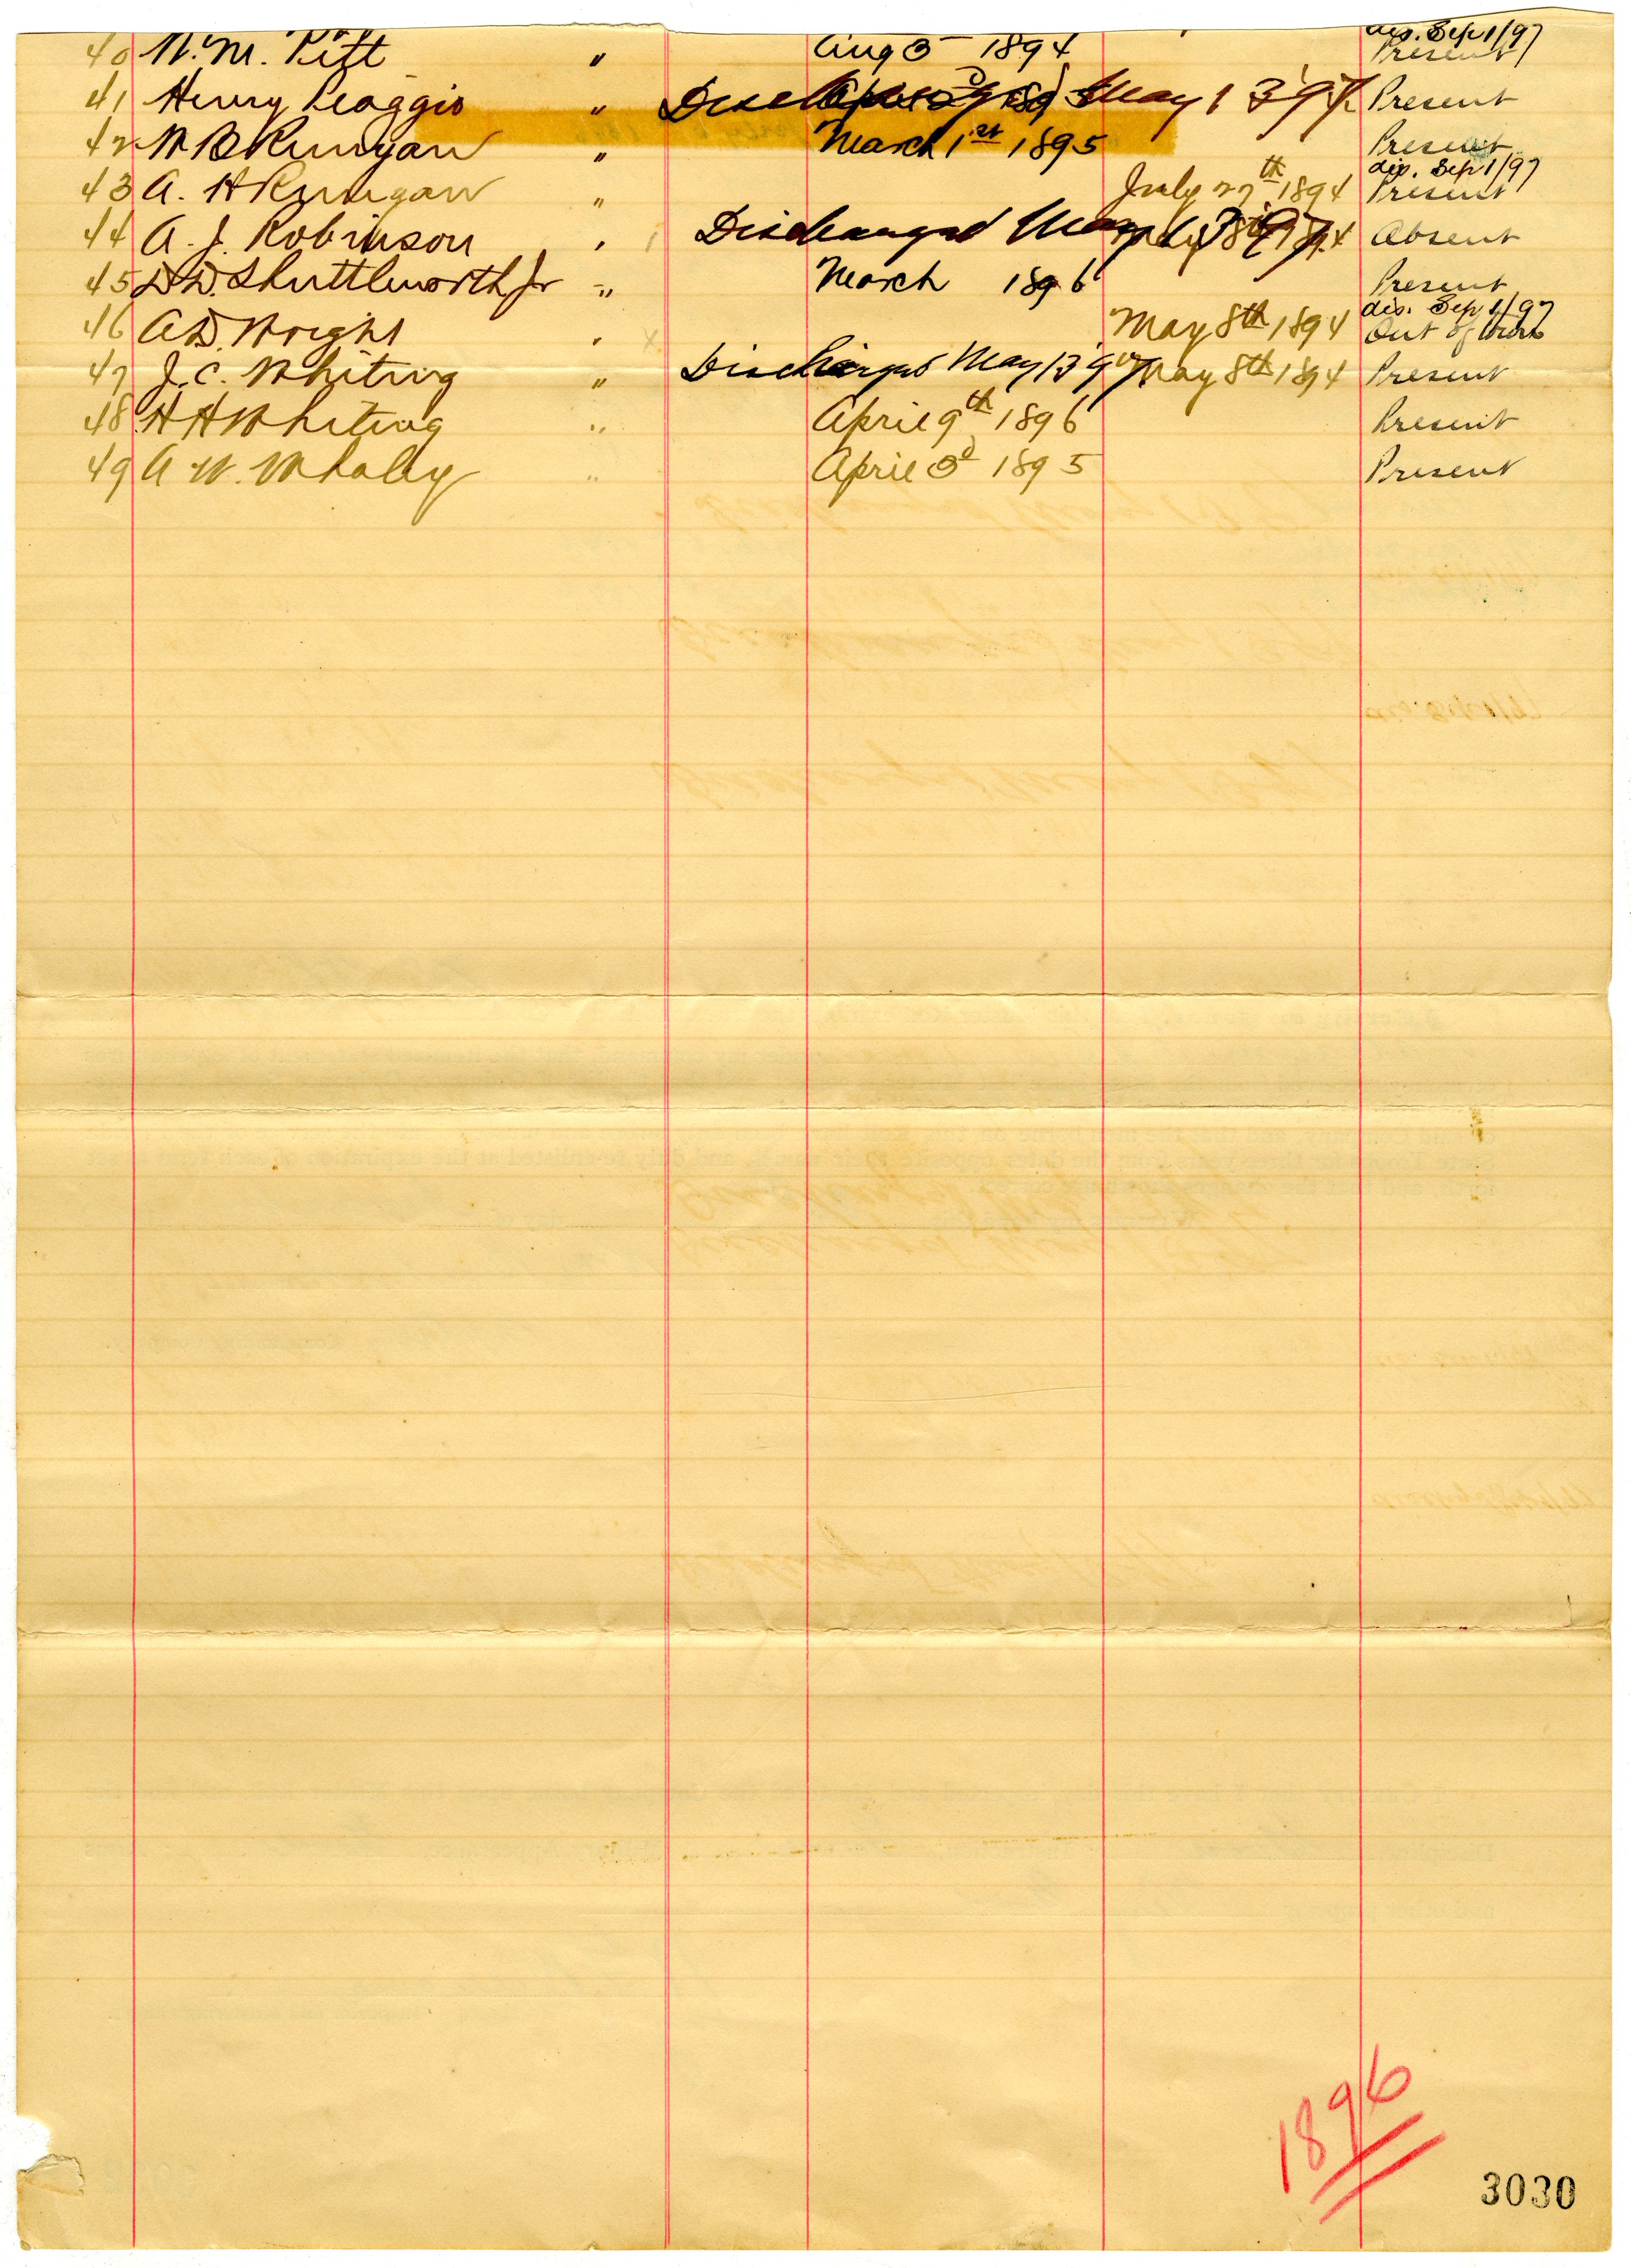 dis. Sep 1/97
40 W. M. Pitt " Aug 3 1894 Present
41 Henry Peaggio " Discharged May 13 97 Present
42 W B Runyan " March 1st 1895 Present
dis. Sep 1/97
43 A. H Runyan " July 27th 1894 Present
44 A. J. Robinson " Discharged May 13 97 Absent
45 D D. Shuttleworth Jr " March 1896 Present
dis. Sep 1/97
46 A D. Wright " May 8th 1894 Out of
47 J. C. Whiting " Discharged May 13 97 May 8th 1894 Present
48 H H Whiting " April 9th 1896 Present
49 A W. Whaley " April 3d 1895 Present
1896
3030